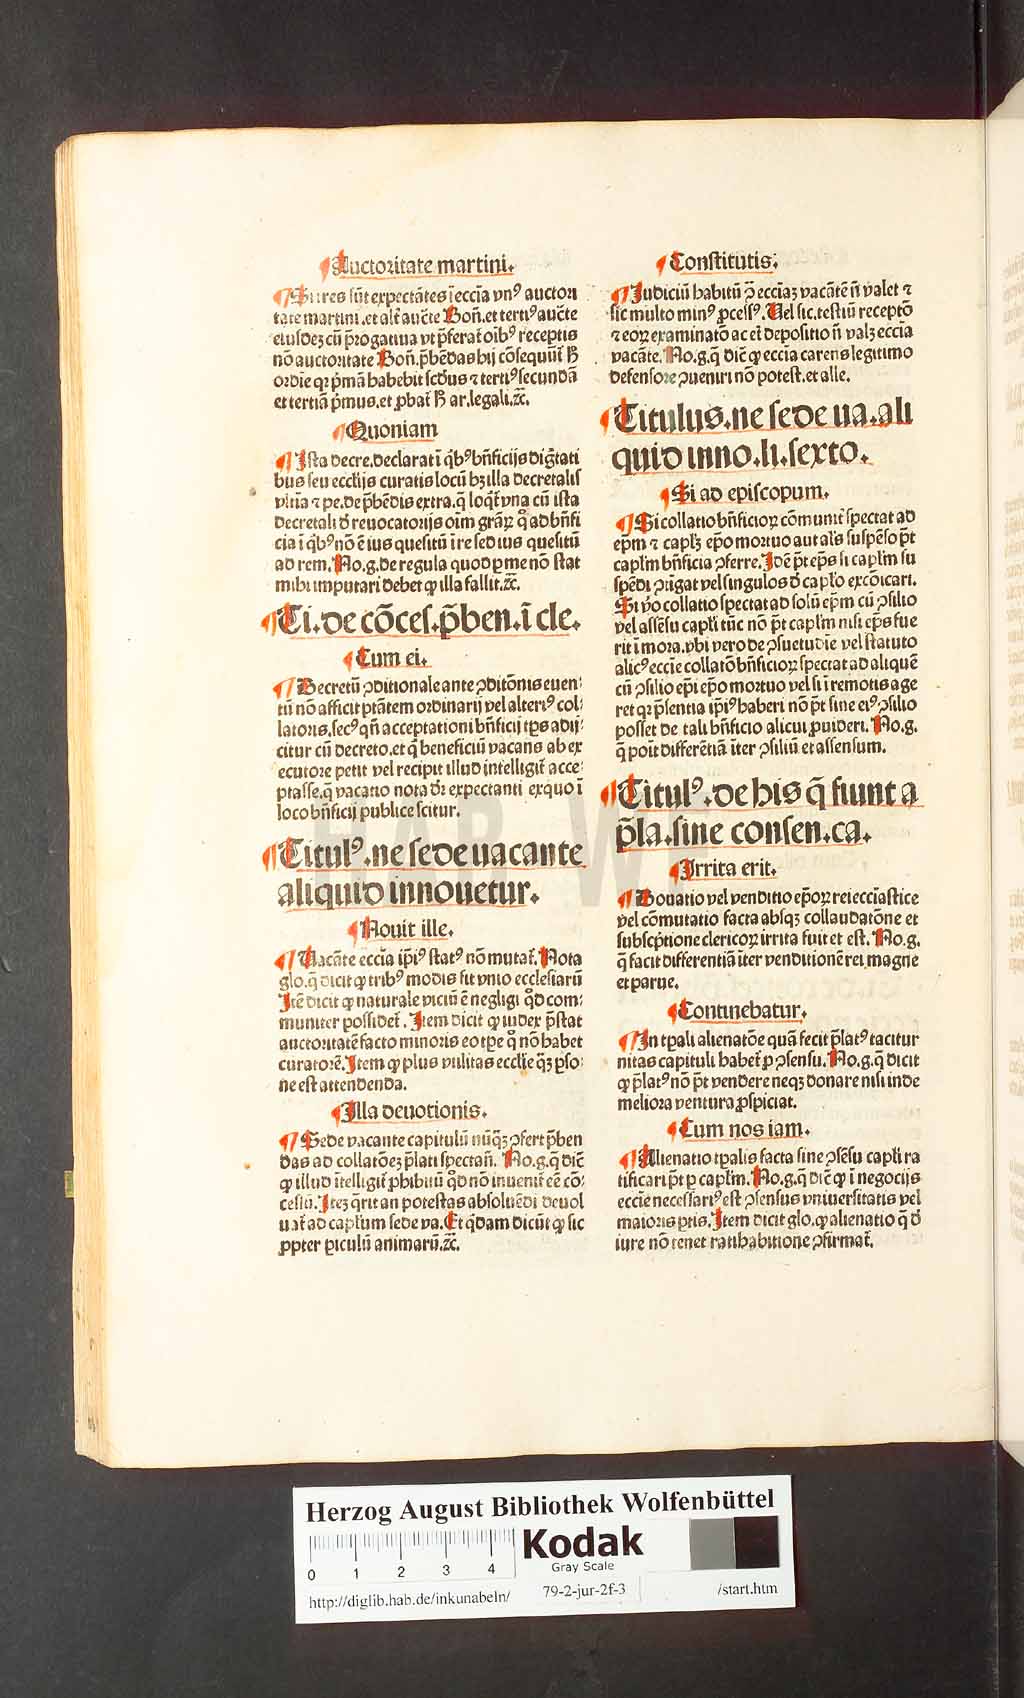 ¶ Auctoritate martini.
¶ Si tres sūt expectātes ī eccīa vnꝰ auctori
tate martini. et alt̄ auc̄te Bon̄. et tertiꝰ auc̄te
eiusdeꝫ cū p̄rogatiua vt p̄ferat̄ oībꝰ receptis
nō auctoritate Bon̄. p̄bēdas hij cōsequūt̄ ħ
ordīe qꝛ p̄mā habebit scd̄us ⁊ tertiꝰ secundā
et tertiā p̄mus. et ꝓbat̄ ħ ar. legali. ⁊c̄.
¶ Quoniam
¶ Ista decre. declarat ī q̄bꝰ bn̄ficijs dign̄tati
bus seu ecclijs curatis locū hꝫ illa decretalis
vltīa ⁊ pe. de p̄bēdis extra. q̄ loqt̄ vna cū ista
decretali d̄ reuocatorijs oīm grāꝝ ꝙ ad bn̄fi
cia ī q̄bꝰ nō ē ius quesitū ī re sed ius quesitū
ad rem. No. g. de regula quod ꝑ me nō stat
mihi imputari debet ꝙ illa fallit. ⁊c̄.
¶ Ti. de cōces. p̄ben. ī cle.
¶ Cum ei.
¶ Decretū ꝯditionale ante ꝯditōnis euen⸗
tū nō afficit ptātem ordinarij vel alteriꝰ col⸗
latoris, secꝰ qn̄ acceptationi bn̄ficij ip̄s adij⸗
citur cū decreto. et q̄ beneficiū vacans ab ex
ecutore petit vel recipit illud intelligit̄ acce⸗
ptasse. q̄ vacatio nota d̄r expectanti ex quo ī
loco bn̄ficij publice scitur.
¶ Titulꝰ. ne sede uacante
aliquid innouetur.
¶ Nouit ille.
¶ Vacāte eccīa ip̄iꝰ statꝰ nō mutat̄. Nota
glo. q̄ dicit ꝙ tribꝰ modis fit vnio ecclesiarū
Itē dicit ꝙ naturale viciū ē negligi qd̄ com⸗
muniter possidet̄. Item dicit ꝙ iudex p̄stat
auctoritatē facto minoris eo tp̄e q̄ nō habet
curatorē. Item ꝙ plus vtilitas ecclīe q̄ꝫ ꝑso⸗
ne est attendenda.
¶ Illa deuotionis.
¶ Sede vacante capitulū nūq̄ꝫ ꝯfert p̄ben
das ad collatōeꝫ p̄lati spectan̄. No. g. q̄ dic̄
ꝙ illud ītelligit̄ ꝓhibitū qd̄ nō inuenit̄ eē cō⸗
cessū. Iteꝫ q̄rit an potestas absoluēdi deuol
uat̄ ad capl̄um sede va. Et q̄dam dicūt ꝙ sic
ꝓpter ꝑiculū animarū. ⁊c̄.
¶ Constitutis.
¶ Iudiciū habitū ꝑ eccīaꝫ vacātē n̄ valet ⁊
sic multo minꝰ ꝓcessꝰ. Vel sic. testiū receptō
⁊ eoꝝ examinatō ac et̄ depositio n̄ valꝫ eccīa
vacāte. No. g. q̄ dic̄ ꝙ eccīa carens legitimo
defensore ꝯueniri nō potest. et alle.
¶ Titulus. ne sede ua. ali
quid inno. li. sexto.
¶ Si ad episcopum.
¶ Si collatio bn̄ficioꝝ cōmunit̄ spectat ad
ep̄m ⁊ capl̄ꝫ ep̄o mortuo aut al̄s suspēso p̄t
capl̄m bn̄ficia ꝯferre. Idē p̄t ep̄s si capl̄m su
spēdi ꝯtīgat vel singulos d̄ capl̄o excōicari.
Si v̄o collatio spectat ad solū ep̄m cū ꝯsilio
vel assēsu capl̄i tūc nō p̄t capl̄m nisi ep̄s fue
rit ī mora. vbi vero de ꝯsuetudīe vel statuto
alicꝰ eccīe collatō bn̄ficioꝝ spectat ad aliquē
cū ꝯsilio ep̄i ep̄o mortuo vel si ī remotis age
ret qꝛ p̄sentia ip̄iꝰ haberi nō p̄t sine eiꝰ ꝯsilio
posset de tali bn̄ficio alicui ꝓuideri. No. g.
q̄ poīt differētiā īter ꝯsiliū et assensum.
¶ Titulꝰ. de his q̄ fiunt a
p̄la. sine consen. ca.
¶ Irrita erit.
¶ Donatio vel venditio ep̄oꝝ rei eccīastice
vel cōmutatio facta absqꝫ collaudatōne et
subscp̄tione clericoꝝ irrita fuit et est. No. g.
q̄ facit differentiā īter venditionē rei magne
et parue.
¶ Continebatur.
¶ In tp̄ali alienatōe quā fecit p̄latꝰ tacitur
nitas capituli habet̄ ꝑ ꝯsensu. No. g. q̄ dicit
ꝙ p̄latꝰ nō p̄t vendere neqꝫ donare nisi inde
meliora ventura ꝓspiciat.
¶ Cum nos iam.
¶ Alienatio tp̄alis facta sine ꝯsēsu capl̄i ra
tificari p̄t ꝑ capl̄m. No. g. q̄ dic̄ ꝙ ī negocijs
eccīe necessariꝰ est ꝯsensus vniuersitatis vel
maioris ꝑtis. Item dicit glo. ꝙ alienatio q̄ d̄
iure nō tenet ratihabitione ꝯfirmat̄.
HAB WF
Herzog August Bibliothek Wolfenbüttel
0 1 2 3 4
Kodak
Gray Scale
http://diglib.hab.de/inkunabeln/ 79-2-jur-2f-3 /start.htm